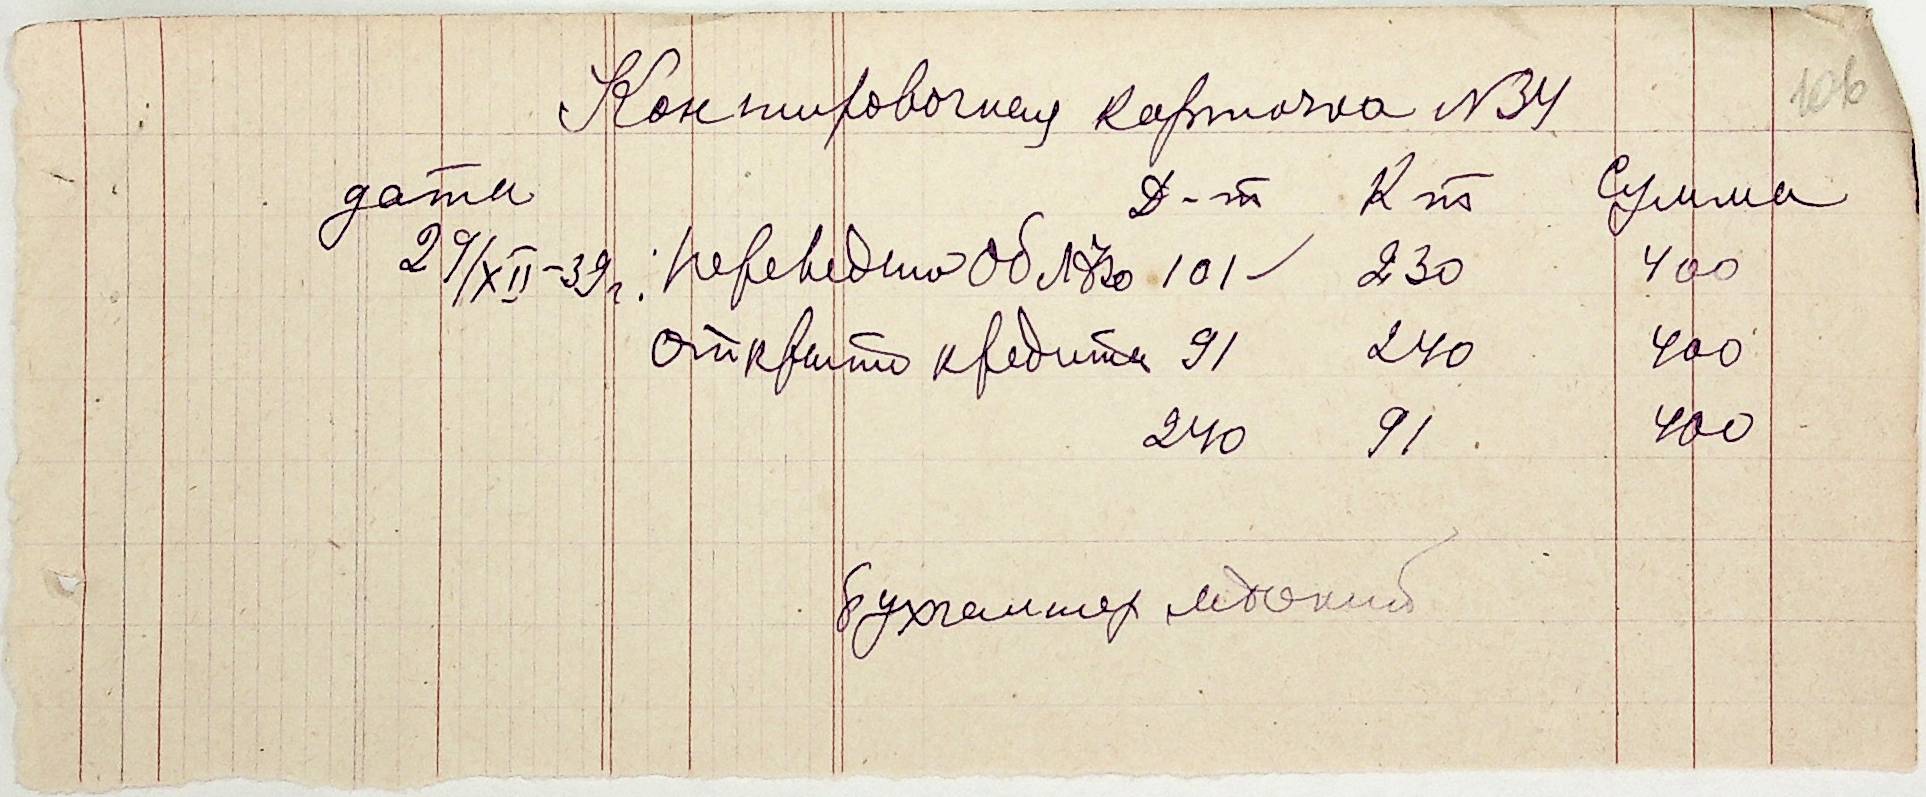 106
Контировочная карточка №34
дата Д-т К-т Сумма
29/XII-39г. Переведено Обл 101 230 400
Открыто кредита 91 240 400
240 91 400
Бухгалтер